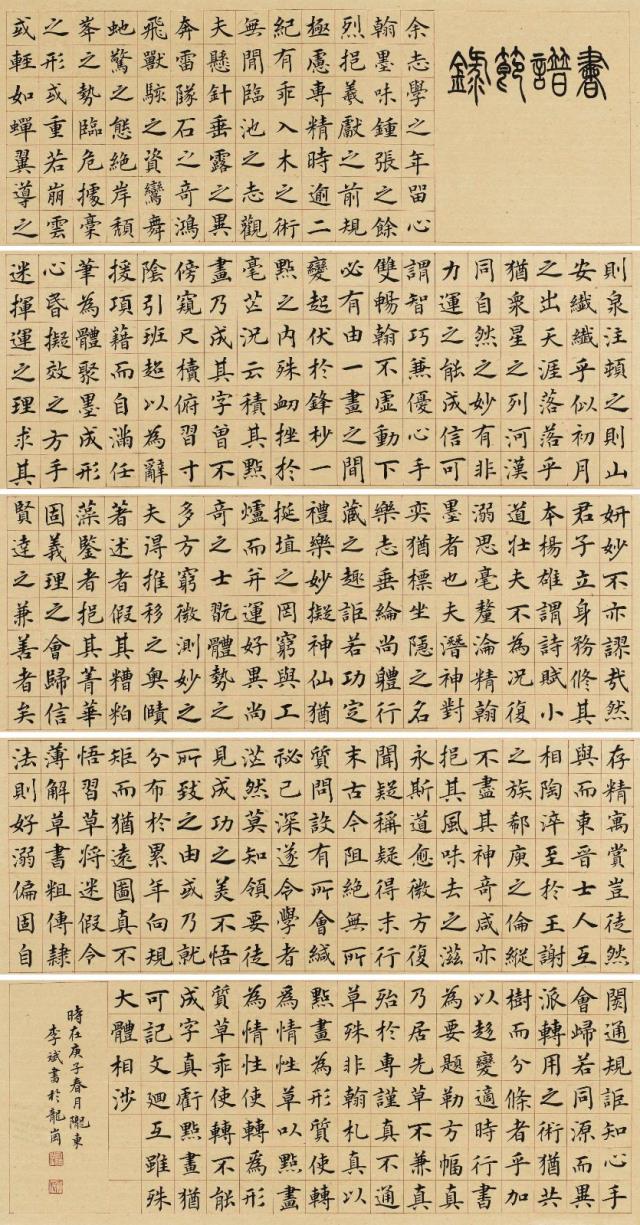 書譜節錄
余志學之年留心
翰墨味鍾張之餘
烈挹羲獻之前規
極慮專精時逾二
紀有乖入木之術
無間臨池之志觀
夫懸針垂露之異
奔雷隊石之奇鴻
飛獸駭之資鸞舞
虵驚之態絕岸頹
峯之勢臨危據槀
之形或重若崩雲
或輕如蟬翼導之
則泉注頓之則山
安纖纖乎似初月
之出天涯落落乎
猶衆星之列河漢
同自然之妙有非
力運之能成信可
謂智巧兼優心手
雙暢翰不虛動下
必有由一畫之間
變起伏於鋒杪一
點之內殊衄挫於
毫芒況云積其點
畫乃成其字曾不
傍窺尺櫝俯習寸
陰引班超以為辭
援項籍而自滿任
筆為體聚墨成形
心昏擬效之方手
迷揮運之理求其
妍妙不亦謬哉然
君子立身務修其
本楊雄謂詩賦小
道壯夫不為況復
溺思毫釐淪精翰
墨者也夫潛神對
奕猶標坐隱之名
樂志垂綸尚體行
藏之趣詎若功定
禮樂妙擬神仙猶
挻埴之罔窮與工
爐而並運好異尚
奇之士翫體勢之
多方窮微測妙之
夫得推移之奧賾
著述者假其糟粕
藻鑒者挹其菁華
固義理之會歸信
賢達之兼善者矣
存精寓賞豈徒然
與而東晉士人互
相陶淬至於王謝
之族郗庾之倫縱
不盡其神奇咸亦
挹其風味去之滋
永斯道愈微方復
聞疑稱疑得末行
末古今阻絕無所
質問設有所會緘
秘已深遂令學者
茫然莫知領要徒
見成功之美不悟
所致之由或乃就
分布於累年向規
矩而猶遠圖真不
悟習草將迷假令
薄解草書粗傳隸
法則好溺偏固自
閡通規詎知心手
會歸若同源而異
派轉用之術猶共
樹而分條者乎加
以趁變適時行書
為要題勒方幅真
乃居先草不兼真
殆於專謹真不通
草殊非翰札真以
點畫為形質使轉
為情性草以點畫
為情性使轉為形
質草乖使轉不能
成字真虧點畫猶
可記文迴互雖殊
大體相涉
時在庚子春月隴東
李斌書於龍崗